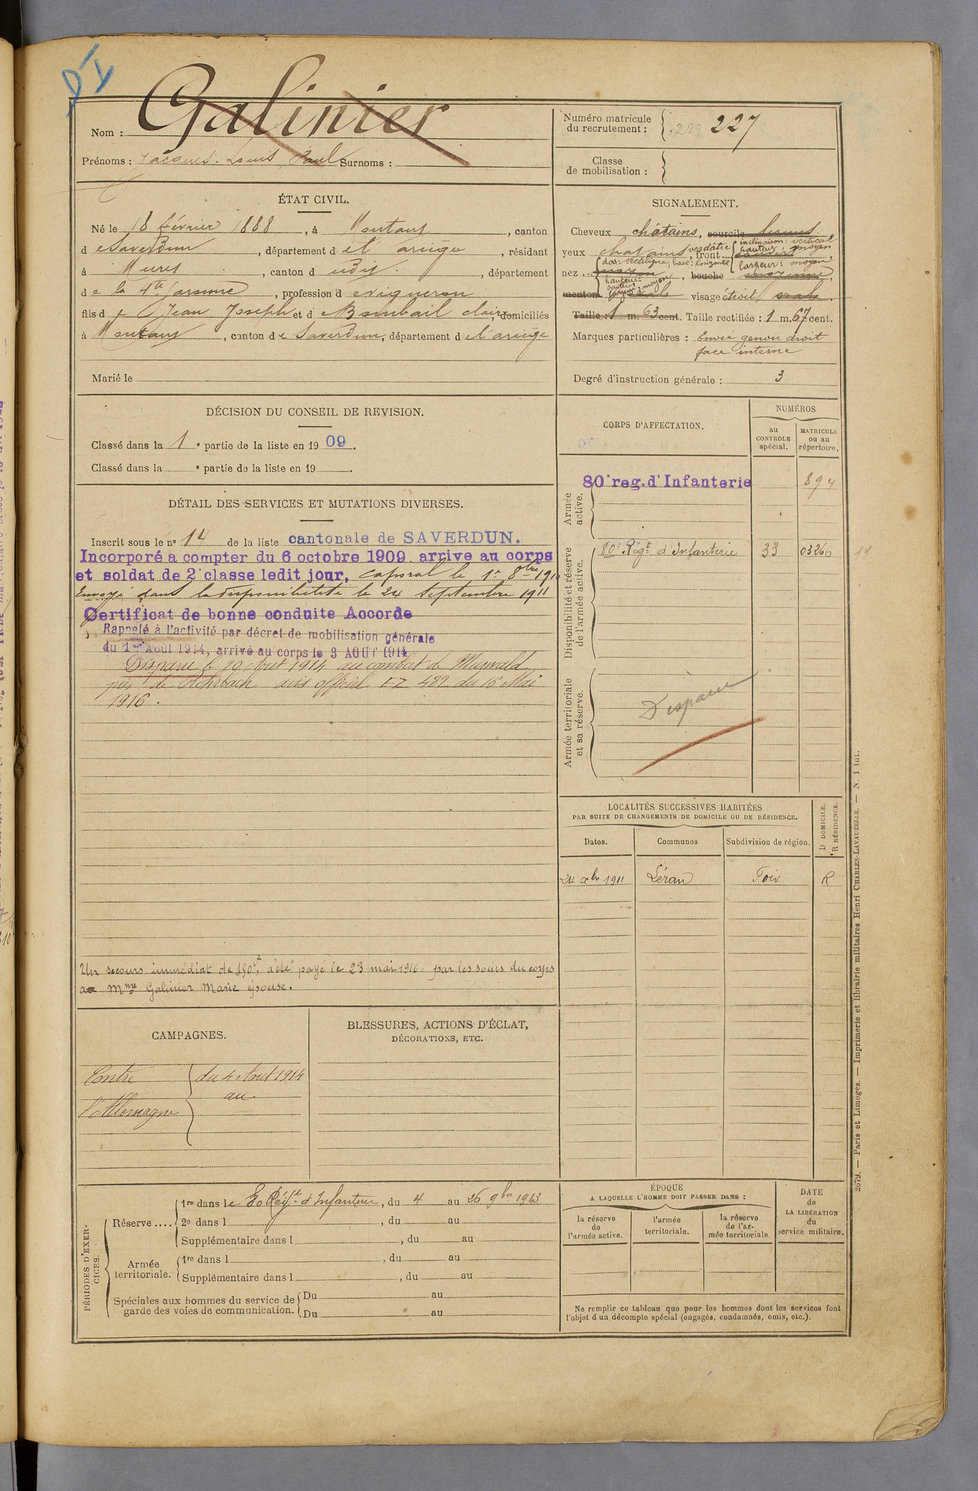 Nom : Galinier
Prénoms : Jacques Louis Paul Surnoms :
Numéro matricule du recrutement : 227
Classe de mobilisation :
ÉTAT CIVIL.
Né le 18 février 1888, à Montaut, canton
d e Saverdun, département d e l'ariège, résidant
à Mures, canton d udit, département
d e la Hte Garonne, profession d e vigneron
fils d e Jean Joseph et d e Bombail claire, domiciliés
à Montaut, canton d e Saverdun, département d e l'ariège
Marié le
SIGNALEMENT.
Cheveux châtains, sourcils
yeux chatains verdâtre, front inclinaison : vertical hauteur : moyen largeur : moyen
nez dos : rectiligne, base : hauteur : moyen, bouche
menton visage étroit
Taille : 1 m. 63 cent. Taille rectifiée : 1 m. 67 cent.
Marques particulières : genou droit
face interne
Degré d'instruction générale : 3
DÉCISION DU CONSEIL DE REVISION.
Classé dans la 1e partie de la liste en 1909.
Classé dans la e partie de la liste en 19
DÉTAIL DES SERVICES ET MUTATIONS DIVERSES.
Inscrit sous le n° 14 de la liste cantonale de SAVERDUN.
Incorporé à compter du 6 octobre 1909 arrive au corps
et soldat de 2e classe ledit jour, caporal le 1er 8bre 1910
Envoyé dans la disponibilité le 24 septembre 1911
Certificat de bonne conduite Accordé
Rappelé à l'activité par décret de mobilisation générale
du 1er Août 1914, arrivé au corps le 3 AOUT 1914
Disparu le 20 Aout 1914 au combat de
près de avis officiel EZ 482 du 16 Mai
1916.
Un secours immédiat de 150f a été payé le 23 mai 1916 par les soins du corps
à Mme Galinier Marie épouse.
CORPS D'AFFECTATION.
NUMÉROS
au CONTROLE spécial.
MATRICULE ou au répertoire.
Armée active.
80e reg. d'Infanterie 894
Disponibilité et réserve de l'armée active.
80e Régt d'Infanterie 33 03266
Armée territoriale et sa réserve.
Disparu
LOCALITÉS SUCCESSIVES HABITÉES
PAR SUITE DE CHANGEMENTS DE DOMICILE OU DE RÉSIDENCE.
Dates. Communes Subdivision de région. D DOMICILE. R RÉSIDENCE.
24 xbre 1911 Léran Foix R
CAMPAGNES.
Contre l'Allemagne du 4 Aout 1914
au
BLESSURES, ACTIONS D'ÉCLAT,
DÉCORATIONS, ETC.
PÉRIODES D'EXERCICES.
Réserve .... 1re dans l e 80 Régt d'Infanterie, du 4 au 26 9bre 1913
2e dans l , du au
Supplémentaire dans l , du au
Armée territoriale. 1re dans l , du au
Supplémentaire dans l , du au
Spéciales aux hommes du service de garde des voies de communication. Du au
Du au
ÉPOQUE
A LAQUELLE L'HOMME DOIT PASSER DANS :
la réserve de l'armée active.
l'armée territoriale.
la réserve de l'armée territoriale.
DATE de LA LIBÉRATION du service militaire.
Ne remplir ce tableau que pour les hommes dont les services font
l'objet d'un décompte spécial (engagés, condamnés, omis, etc.).
2079. — Paris et Limoges. — Imprimerie et librairie militaires Henri CHARLES-LAVAUZELLE. — N. 1 int.